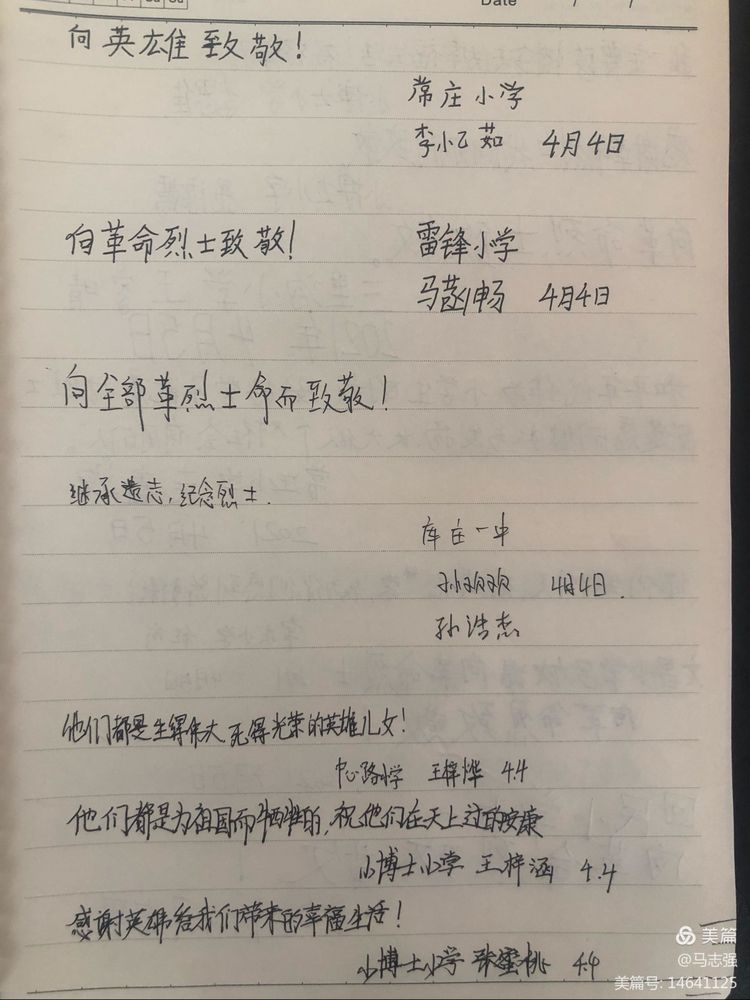 Date / /
向英雄致敬!
常庄小学
李小乙茹 4月4日
向革命烈士致敬!
雷锋小学
马畅 4月4日
向全部革烈士命而致敬!
继承遗志,纪念烈士.
库庄一中
孙欢欢 4月4日.
孙浩杰
他们都是生得伟大死得光荣的英雄儿女!
中心路小学 王梓烨 4.4
他们都是为祖国而牺牲的,祝他们在天上过的安康
小博士小学 王梓涵 4.4
感谢英雄给我们带来的幸福生活!
小博士小学 张蜜桃 4.4
美篇
@马志强
美篇号: 14641125